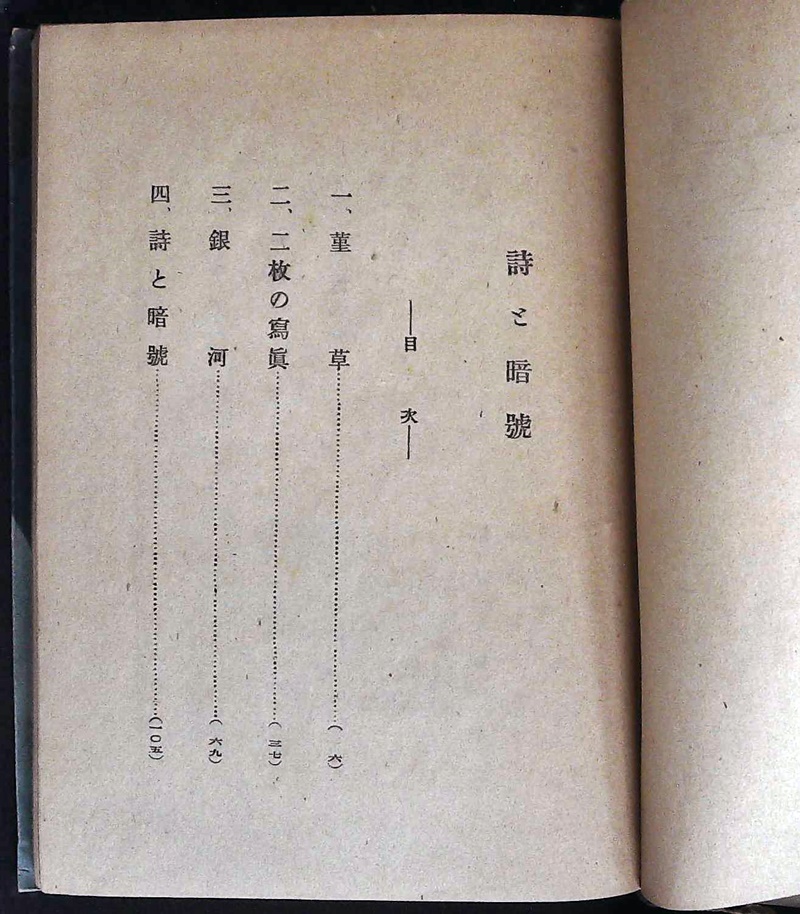 詩と暗號
―目次―
一、菫草……(六)
二、二枚の寫眞……(三七)
三、銀河……(六九)
四、詩と暗號……(一〇五)